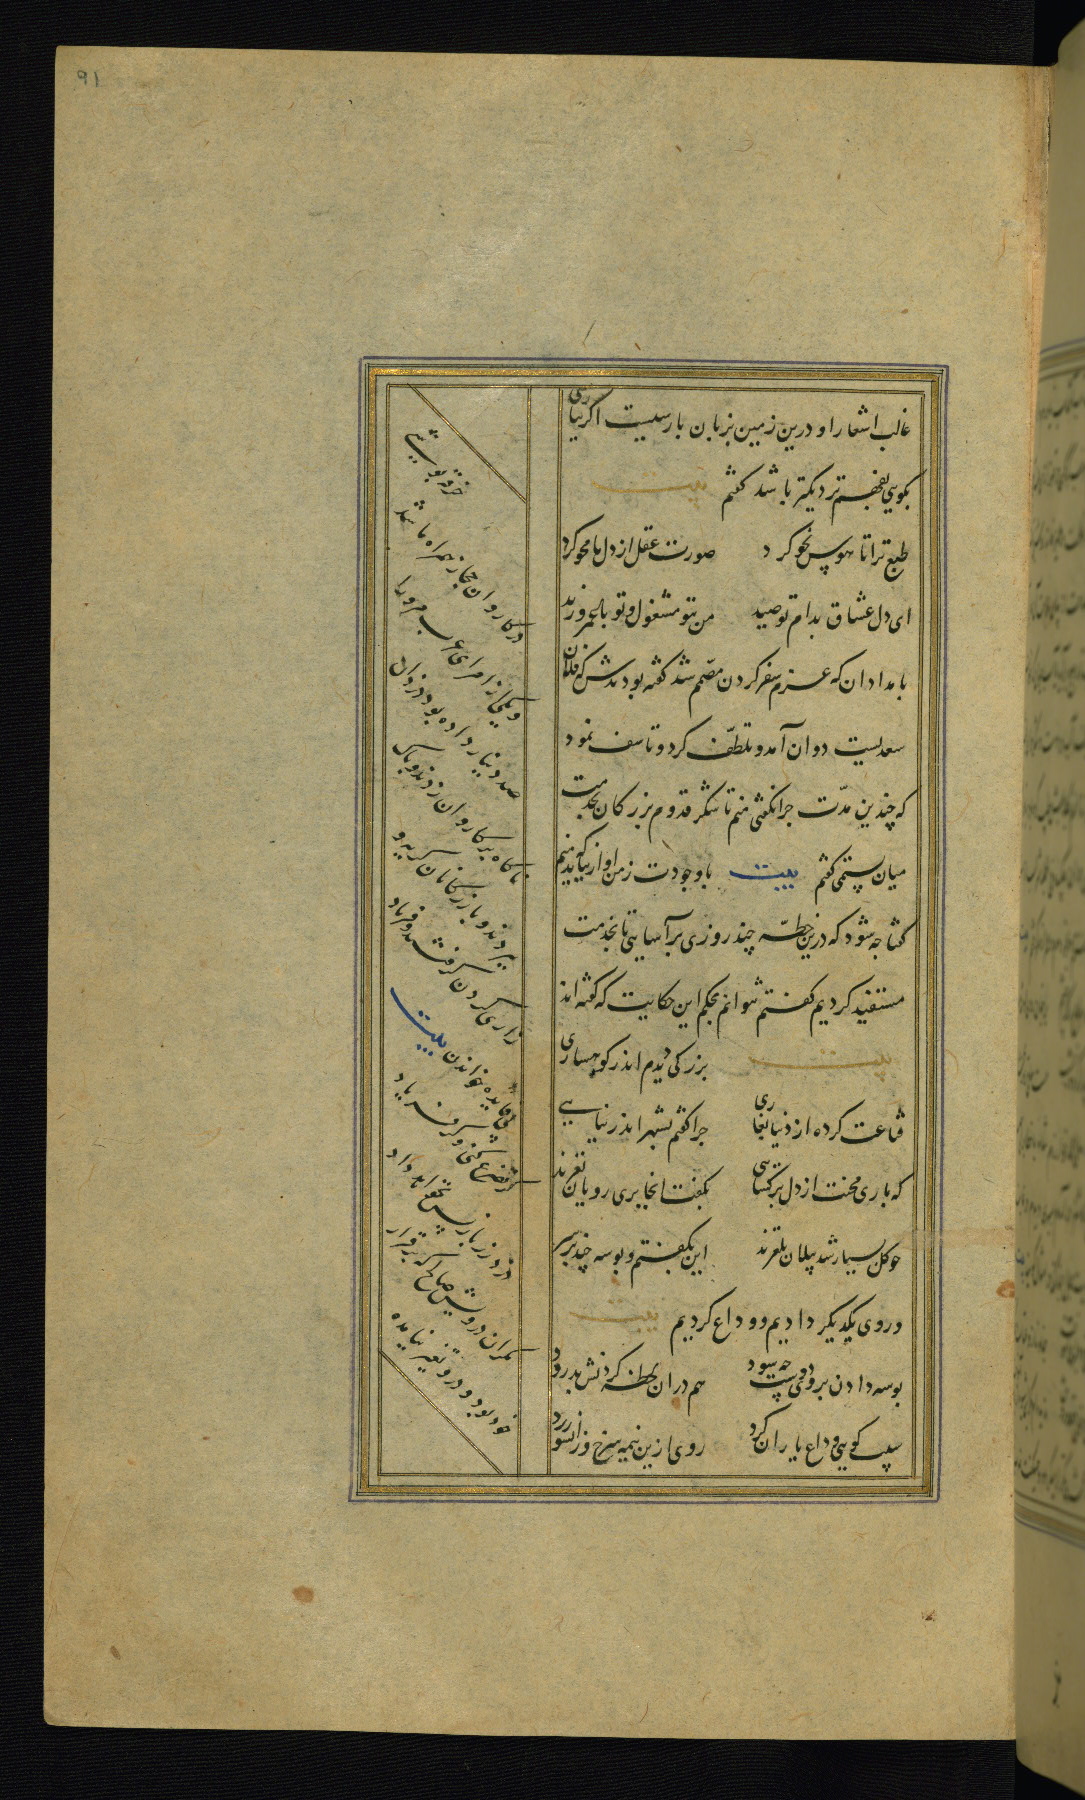 ۹۱
غالب اشعار او درین زمین بزبان پارسیست اگر بپارسی
بگویی بفهم نزدیکتر باشد گفتم بیت
طبع ترا تا هوس نحو کرد صورت عقل از دل ما محو کرد
ای دل عشاق بدام تو صید من بتو مشغول و تو با عمرو زید
بامدادان که عزم سفر کردن مصمم شد گفته بودندش که فلان
سعدیست دوان آمد و تلطف کرد و تاسف نمود
که چندین مدت چرا نگفتی منم تا شکر قدوم بزرگان بخدمت
میان ببستمی گفتم بیت با وجودت ز من آواز نیاید که منم
گفتا چه شود که درین خطه چند روزی برآسایی تا بخدمت
مستفید گردیم گفتم نتوانم بحکم این حکایت که گفته اند
بیت بزرگی دیدم اندر کوهساری
قناعت کرده از دنیا بغاری چرا گفتم بشهر اندر نیایی
که باری محنت از دل برگشایی بگفت آنجا پری رویان نغزند
چو گل بسیار شد پیلان بلغزند این بگفتم و بوسه چند بر سر
و روی یکدیگر دادیم و وداع کردیم بیت
بوسه دادن بروی دوست چه سود هم دران لحظه کردنش بدرود
سیب گویی وداع یاران کرد روی ازین نیمه سرخ و زانسو زرد
خرقه پوشی
در کاروان حجاز همراه ما شد
و یکی از امرای عرب مرو را
صد دینار داده بود
ناگاه بر کاروان زدند و پاک
ببردند و بازرگانان گریه و
زاری کردن گرفتند و فریاد
بی فایده خواندن بیت
گر تضرع کنی و گر فریاد
دزد زر باز پس نخواهد داد
مگر آن درویش صالح که برقرار
خود بود و درو تغیر نیامده